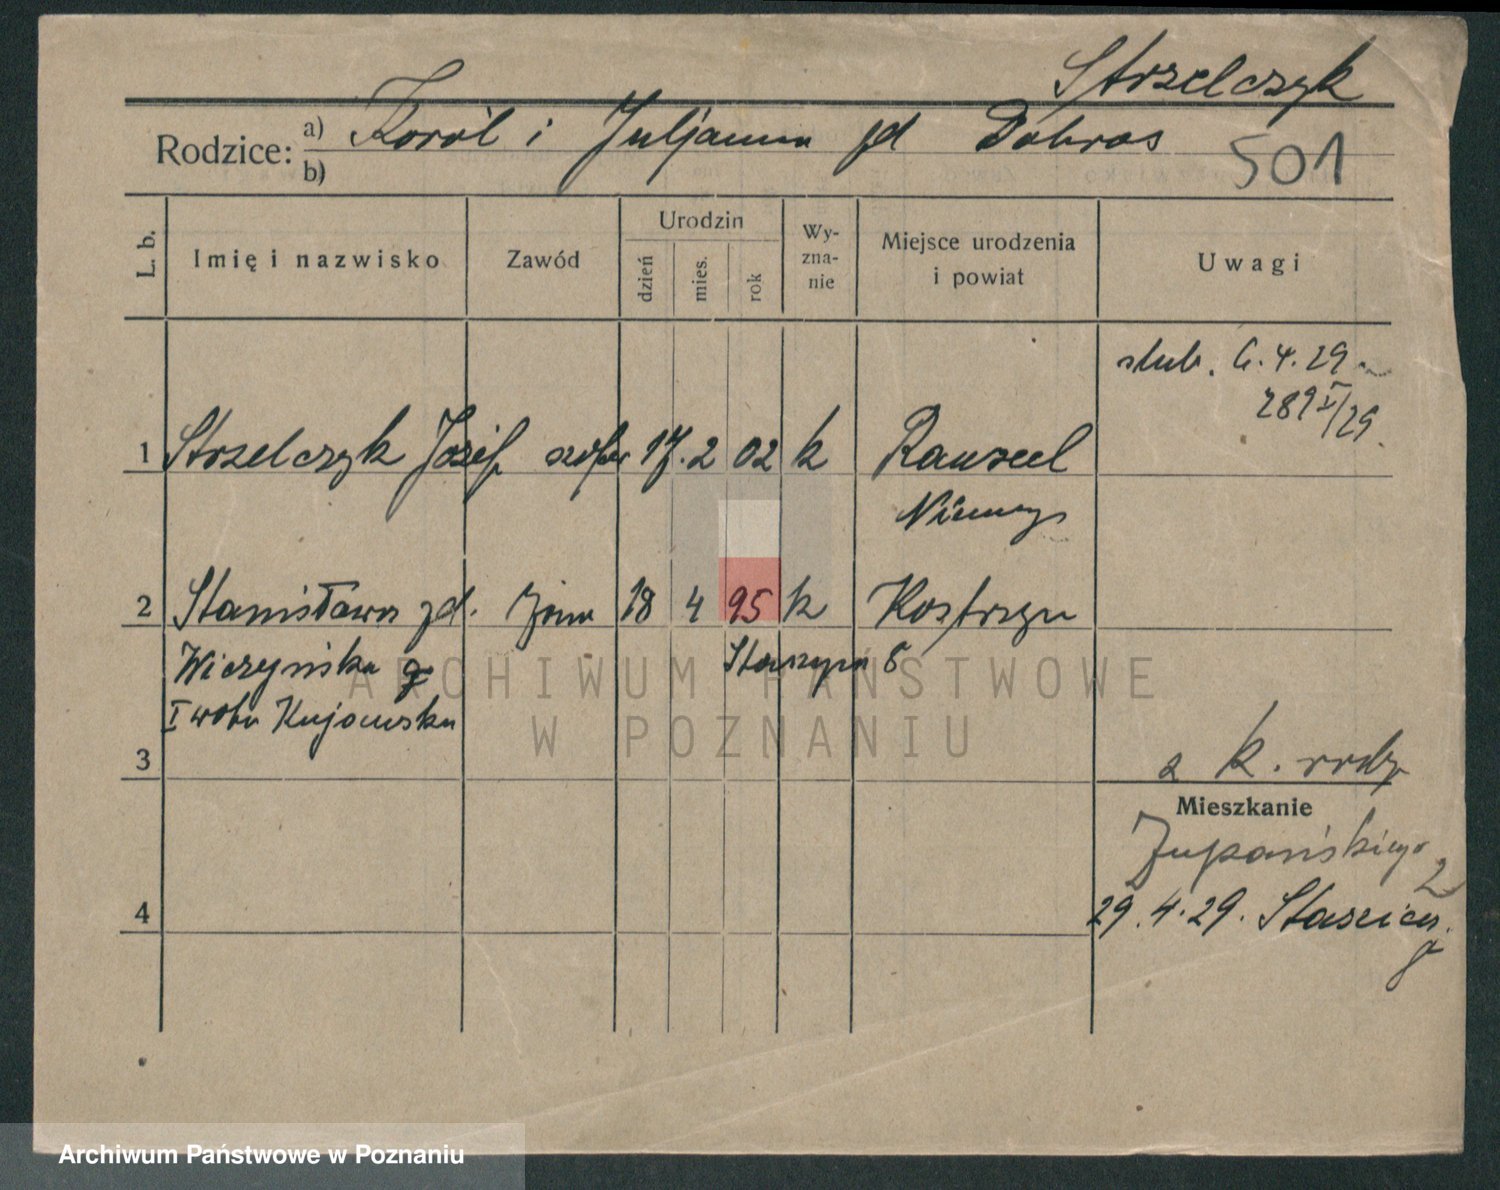 Strzelczyk
Rodzice: a) Karól i Juljanna zd Dobras
b)
501
L. b. Imię i nazwisko Zawód Urodzin dzień mies. rok Wy-zna-nie Miejsce urodzenia i powiat Uwagi
ślub. 6.4.29
289 I/29.
1 Strzelczyk Józef szofer 17.2 02 k Rauxel
Niemcy
2 Stanisława zd. żona 18 4 95 k Kostrzyn
Wiczyńska
I woto Kujawska
3
4
k. rodz
Mieszkanie
Żupańskiego 2
29.4.29. Staszica
ARCHIWUM PAŃSTWOWE
W POZNANIU
Archiwum Państwowe w Poznaniu